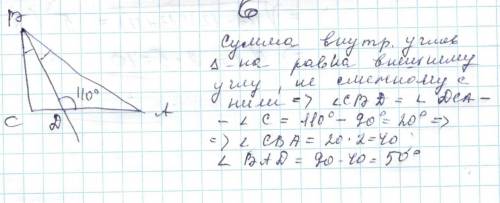 6
B
110°
C
D
A
Сумма внутр. углов
Δ-на равна внешнему
углу, не смежному с
ними => ∠CBD = ∠DCA -
- ∠C = 110° - 90° = 20° =>
=> ∠CBA = 20·2 = 40°
∠BAD = 90 - 40 = 50°